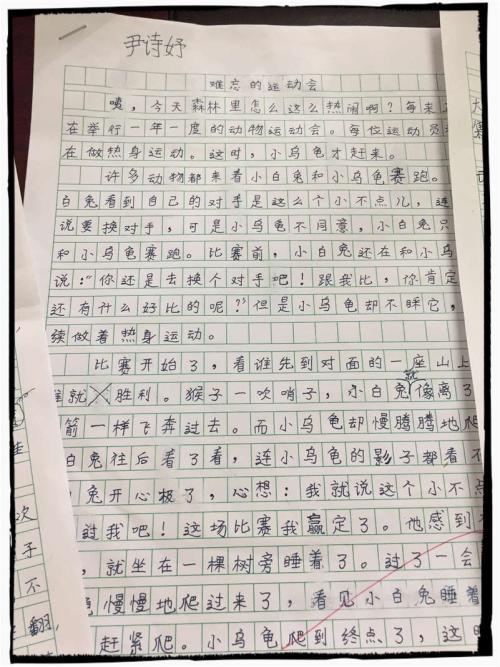 尹诗妤
难忘的运动会
咦，今天森林里怎么这么热闹啊？每来
在举行一年一度的动物运动会。每位运动员
在做热身运动。这时，小乌龟才赶来。
许多动物都来看小白兔和小乌龟赛跑。
白兔看到自己的对手是这么个小不点儿，连
说要换对手，可是小乌龟不同意，小白兔只
和小乌龟赛跑。比赛前，小白兔还在和小乌
说：“你还是去换个对手吧！跟我比，你肯定
还有什么好比的呢？”但是小乌龟却不睬它，
续做着热身运动。
比赛开始了，看谁先到对面的一座山上
谁就胜利。猴子一吹哨子，小白兔就像离了
箭一样飞奔过去。而小乌龟却慢腾腾地爬
白兔往后看了看，连小乌龟的影子都看不
兔开心极了，心想：我就说这个小不点
过我吧！这场比赛我赢定了。他感到
，就坐在一棵树旁睡着了。过了一会
龟慢慢地爬过来了，看见小白兔睡着
赶紧爬。小乌龟爬到终点了，这时
次
子
不
翻，